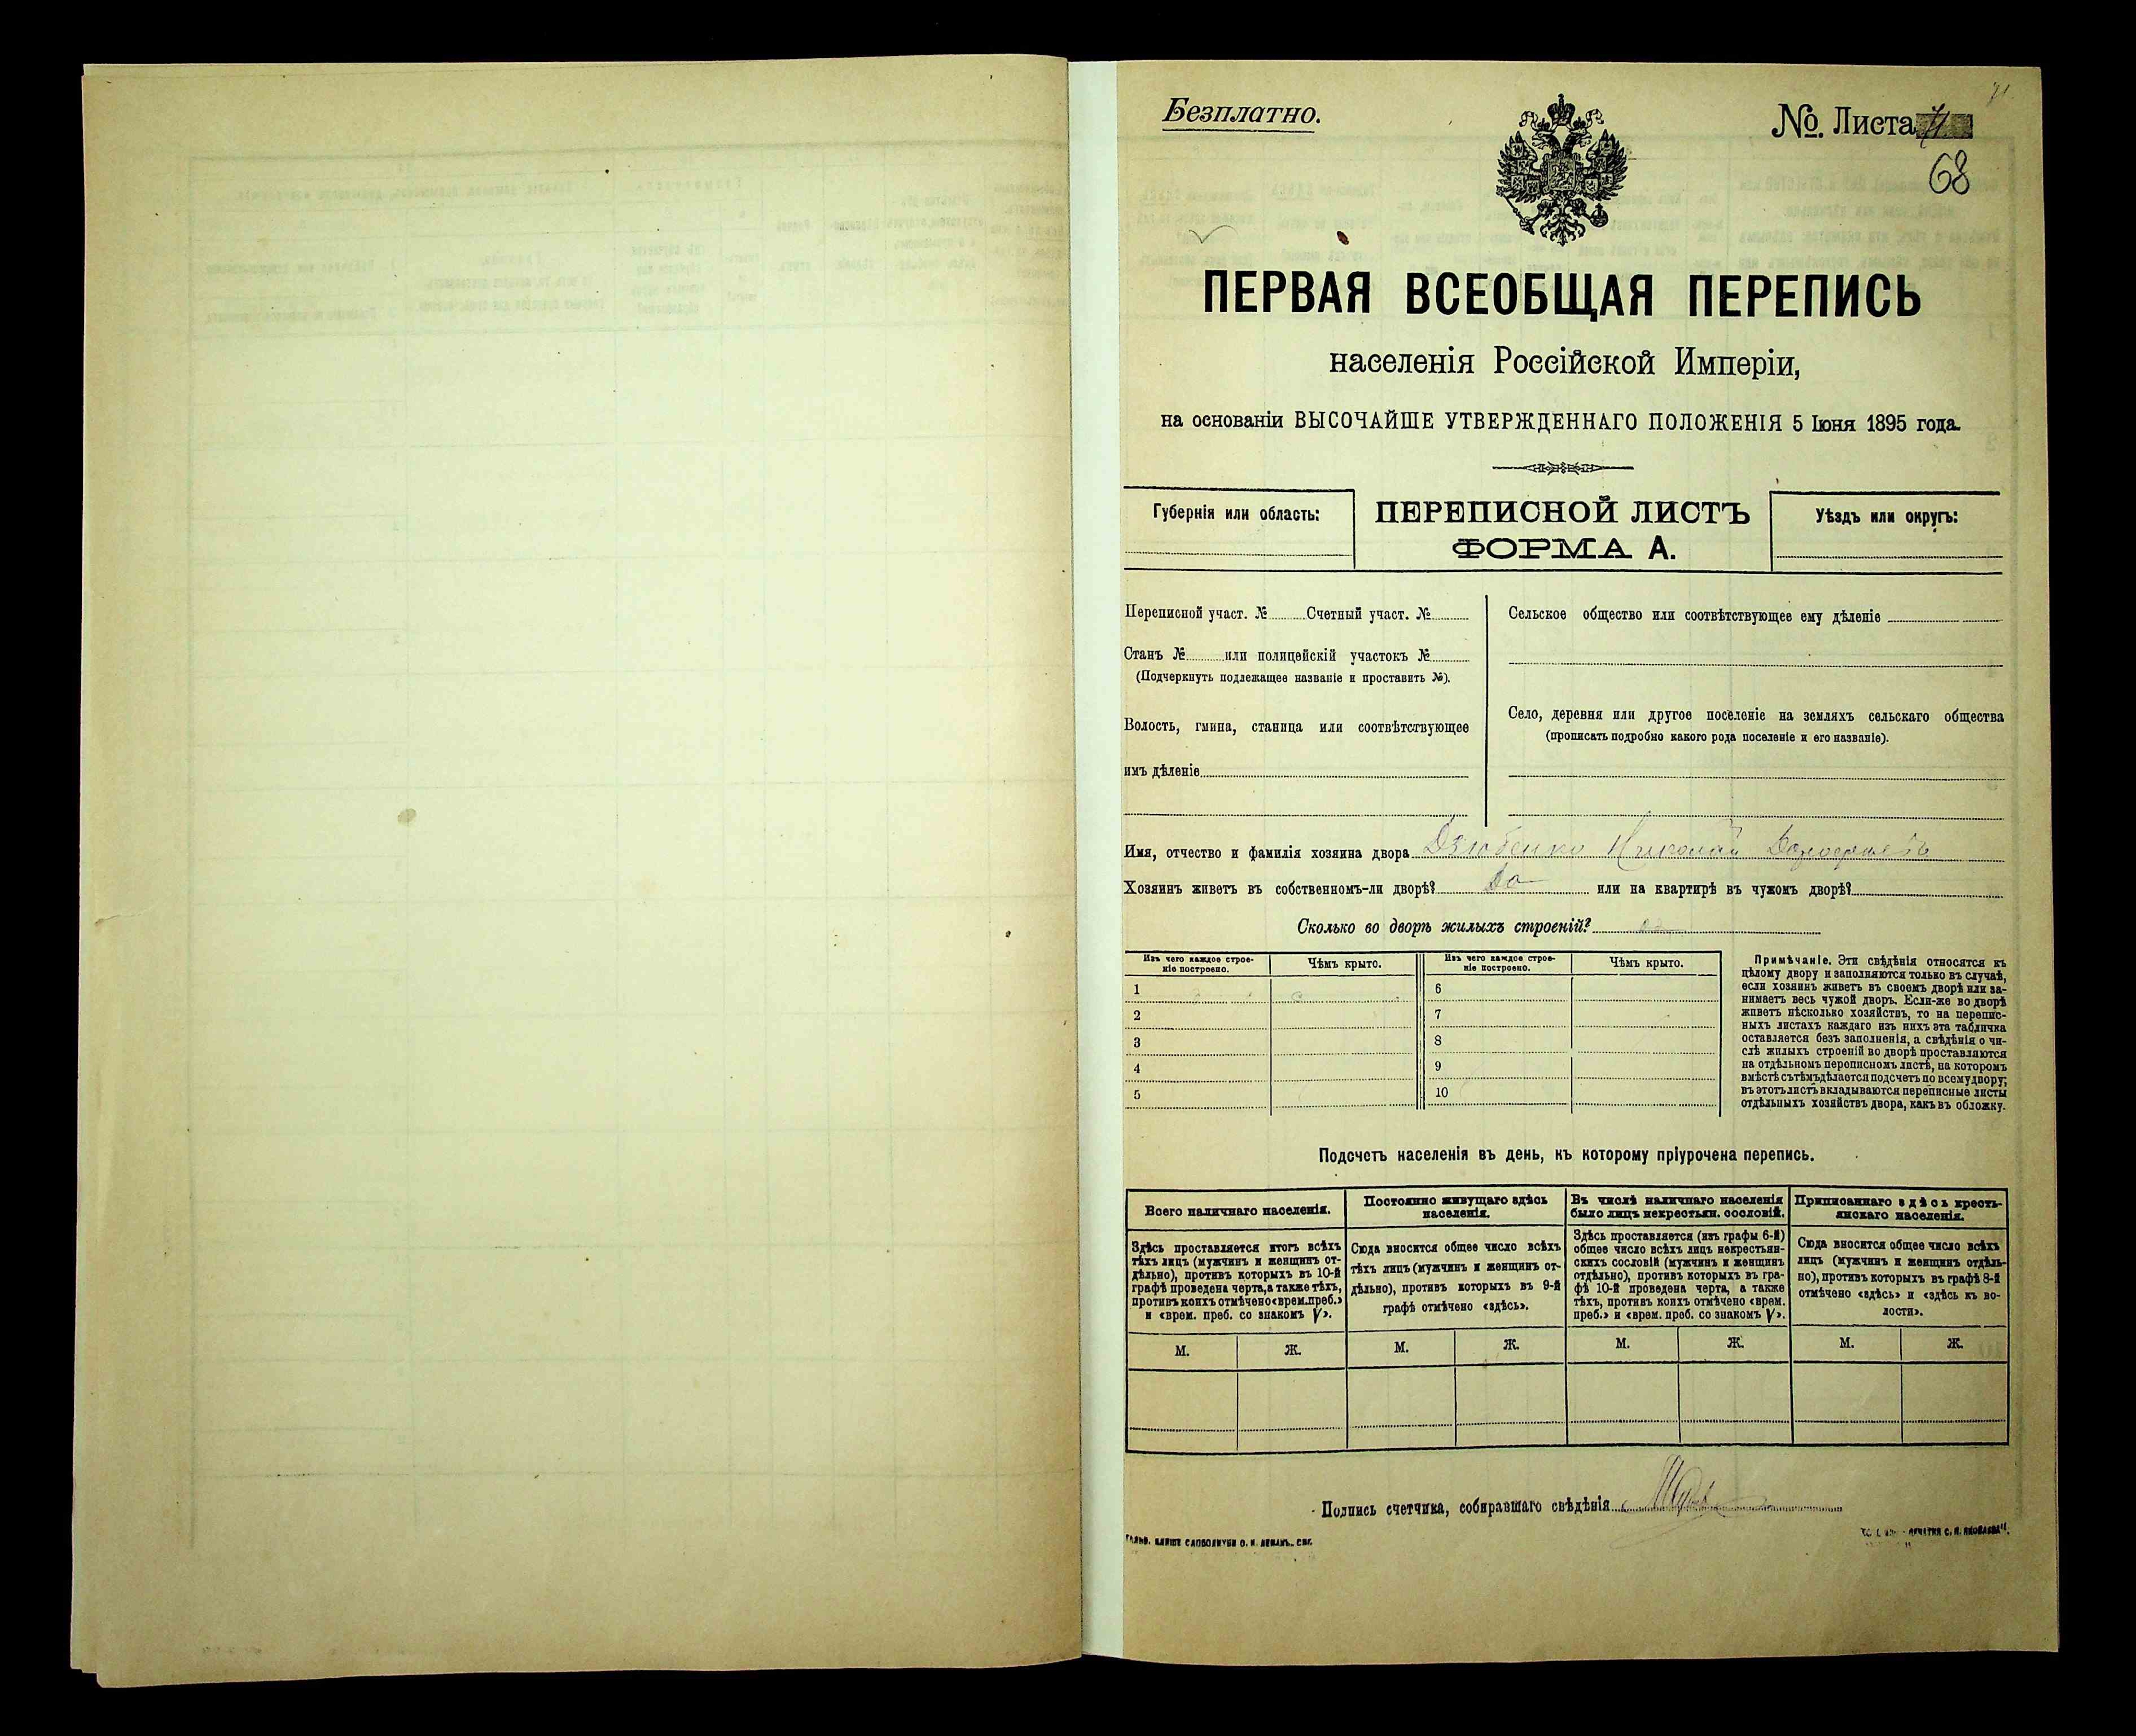 Безплатно.
№. Листа
68
ПЕРВАЯ ВСЕОБЩАЯ ПЕРЕПИСЬ
населенія Россійской Имперіи,
на основаніи ВЫСОЧАЙШЕ УТВЕРЖДЕННАГО ПОЛОЖЕНІЯ 5 Іюня 1895 года.
Губернія или область:
ПЕРЕПИСНОЙ ЛИСТЪ
ФОРМА А.
Уѣздъ или округъ:
Переписной участ. № Счетный участ. №
Станъ № или полицейскій участокъ №
(Подчеркнуть подлежащее названіе и проставить №).
Волость, гмина, станица или соотвѣтствующее
имъ дѣленіе
Сельское общество или соотвѣтствующее ему дѣленіе
Село, деревня или другое поселеніе на земляхъ сельскаго общества
(прописать подробно какого рода поселеніе и его названіе).
Имя, отчество и фамилія хозяина двора Дзюбенко Николай
Хозяинъ живетъ въ собственномъ-ли дворѣ? До или на квартирѣ въ чужомъ дворѣ?
Сколько во дворѣ жилыхъ строеній?
Изъ чего каждое строе-
ніе построено.
Чѣмъ крыто.
1
2
3
4
5
Изъ чего каждое строе-
ніе построено.
Чѣмъ крыто.
6
7
8
9
10
Примѣчаніе. Эти свѣдѣнія относятся къ
цѣлому двору и заполняются только въ случаѣ,
если хозяинъ живетъ въ своемъ дворѣ или за-
нимаетъ весь чужой дворъ. Если-же во дворѣ
живетъ нѣсколько хозяйствъ, то на перепис-
ныхъ листахъ каждаго изъ нихъ эта табличка
оставляется безъ заполненія, а свѣдѣнія о чи-
слѣ жилыхъ строеній во дворѣ проставляются
на отдѣльномъ переписномъ листѣ, на которомъ
вмѣстѣ съ тѣмъ дѣлается подсчетъ по всему двору;
въ этотъ листъ вкладываются переписные листы
отдѣльныхъ хозяйствъ двора, какъ въ обложку.
Подсчетъ населенія въ день, къ которому пріурочена перепись.
Всего наличнаго населенія.
Здѣсь проставляется итогъ всѣхъ
тѣхъ лицъ (мужчинъ и женщинъ от-
дѣльно), противъ которыхъ въ 10-й
графѣ проведена черта, а также тѣхъ,
противъ коихъ отмѣчено «врем. преб.»
и «врем. преб. со знакомъ V».
М. Ж.
Постоянно живущаго здѣсь
населенія.
Сюда вносится общее число всѣхъ
тѣхъ лицъ (мужчинъ и женщинъ от-
дѣльно), противъ которыхъ въ 9-й
графѣ отмѣчено «здѣсь».
М. Ж.
Въ числѣ наличнаго населенія
было лицъ некрестьян. сословій.
Здѣсь проставляется (изъ графы 6-й)
общее число всѣхъ лицъ некрестьян-
скихъ сословій (мужчинъ и женщинъ
отдѣльно), противъ которыхъ въ гра-
фѣ 10-й проведена черта, а также
тѣхъ, противъ коихъ отмѣчено «врем.
преб.» и «врем. преб. со знакомъ V».
М. Ж.
Приписаннаго здѣсь кресть-
янскаго населенія.
Сюда вносится общее число всѣхъ
лицъ (мужчинъ и женщинъ отдѣль-
но), противъ которыхъ въ графѣ 8-й
отмѣчено «здѣсь» и «здѣсь къ во-
лости».
М. Ж.
Подпись счетчика, собиравшаго свѣдѣнія